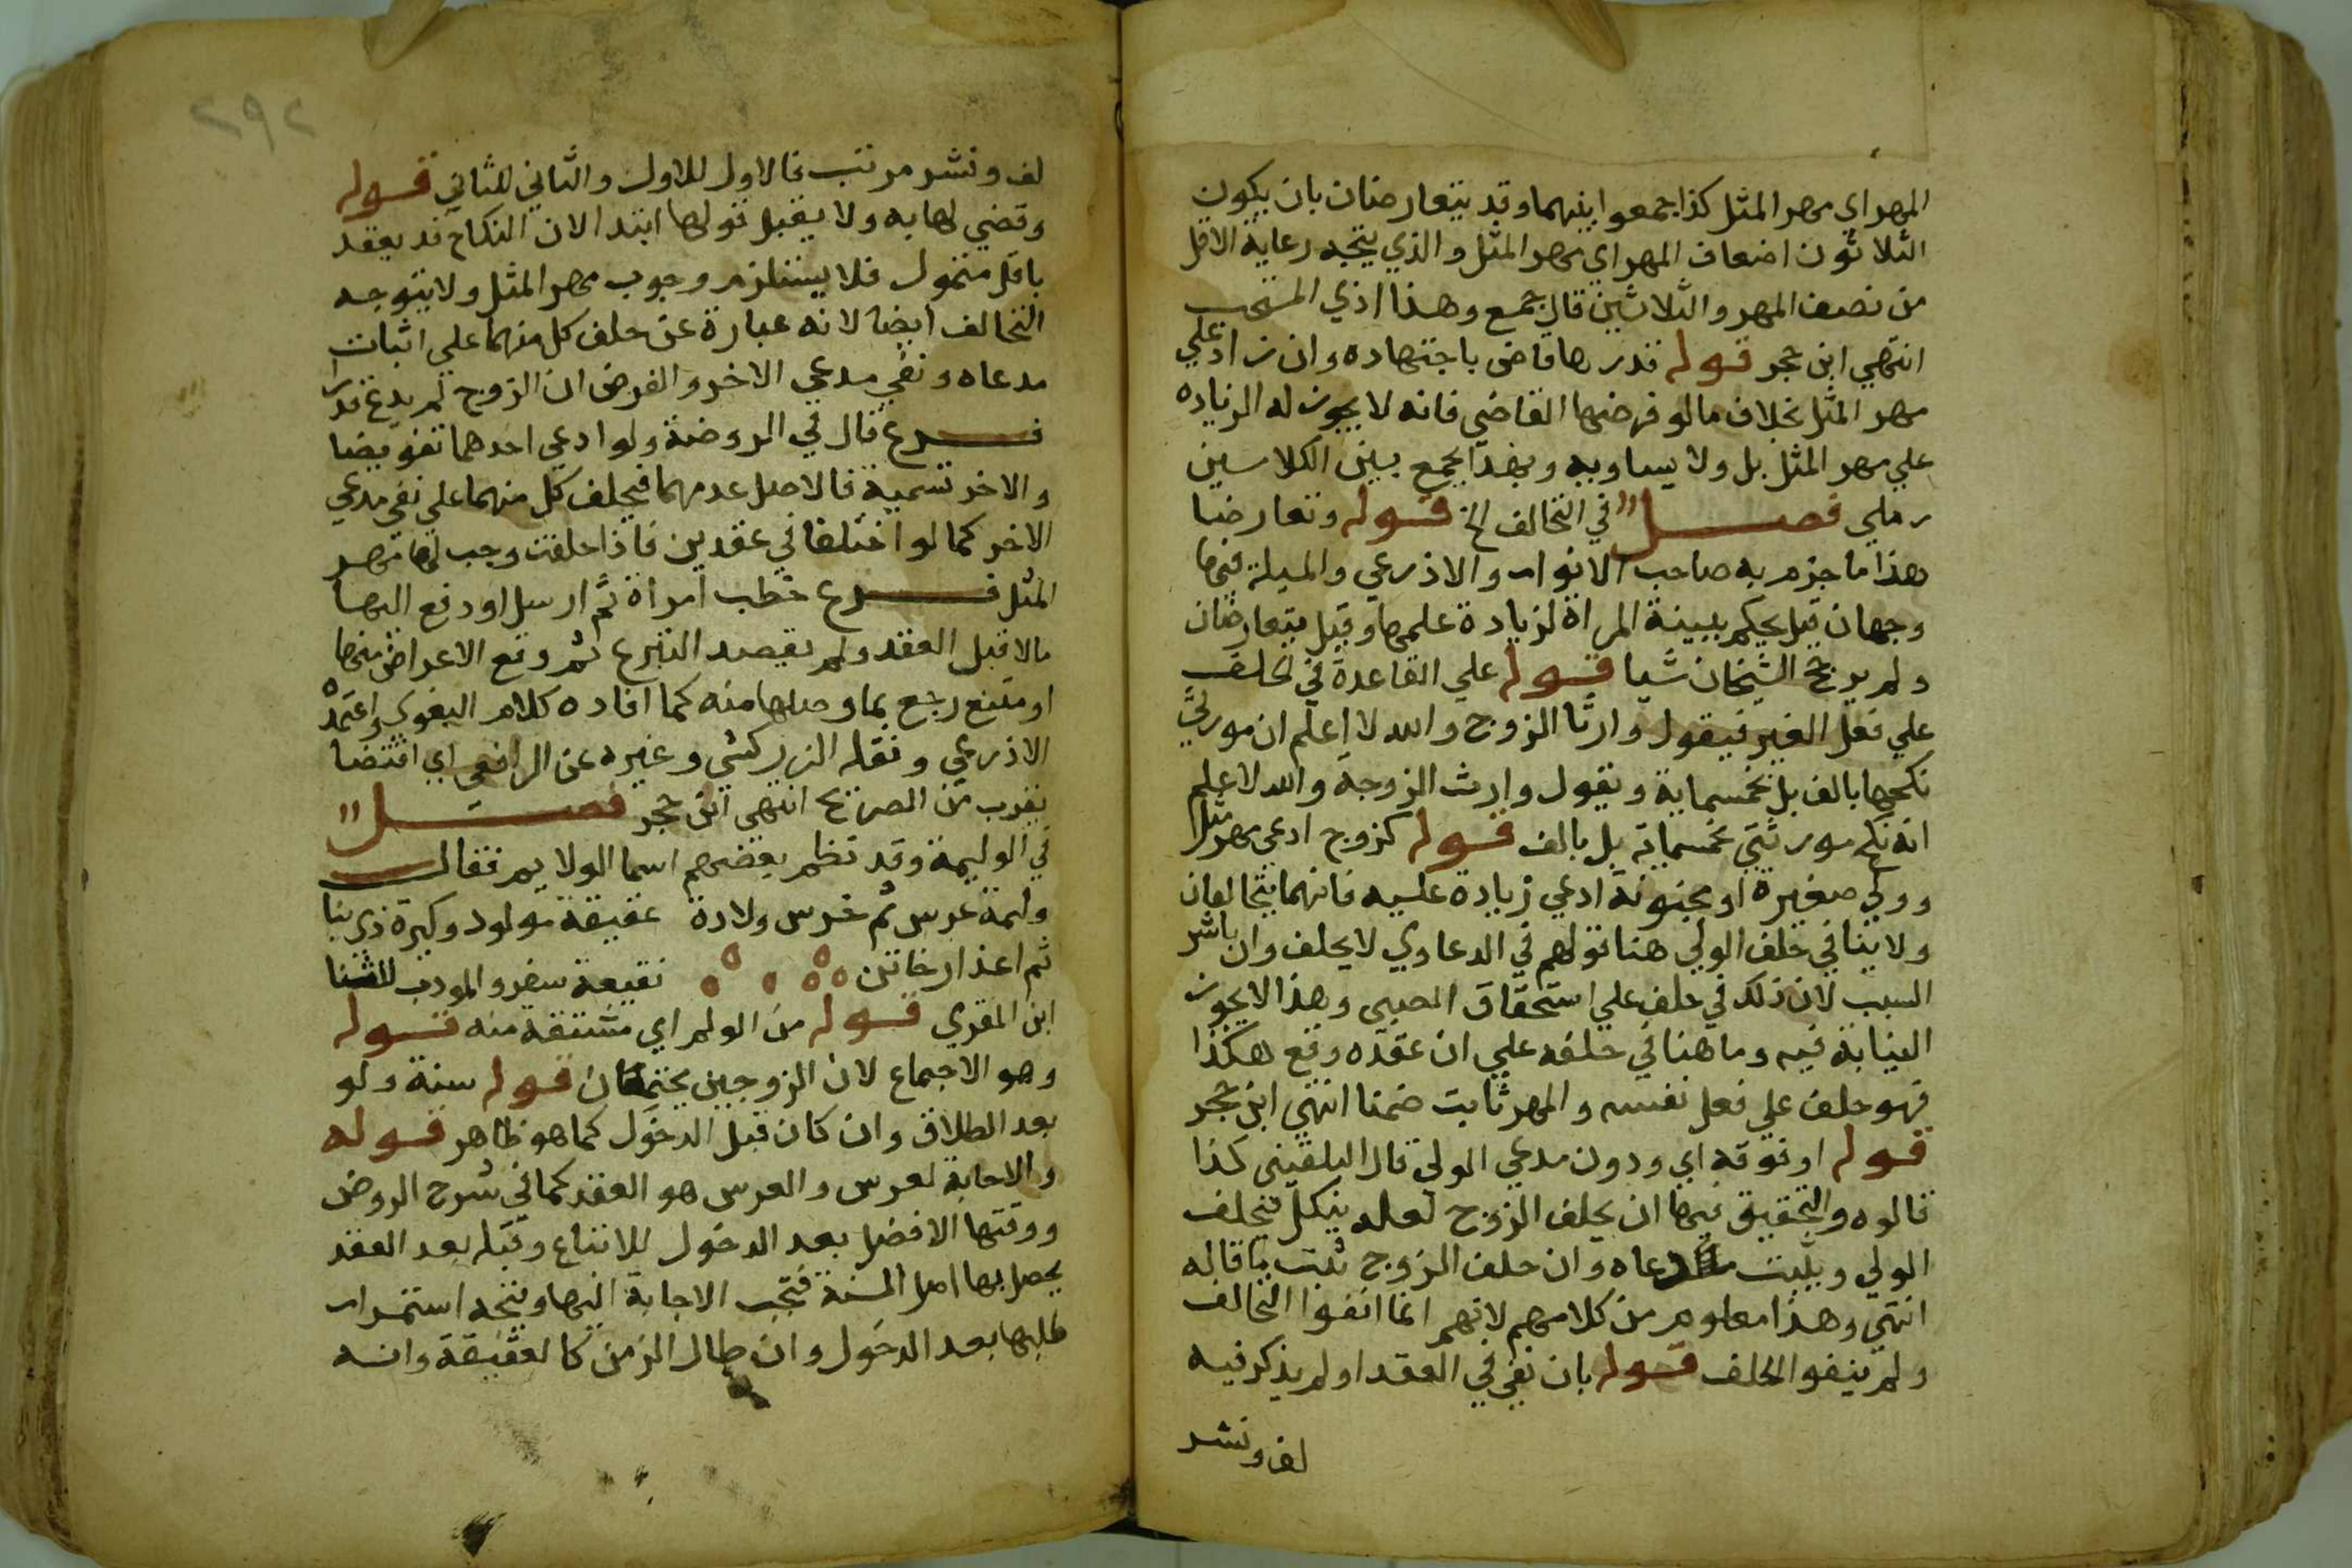 المهر اي مهر المثل كذا جمعوا بينهما وقد يتعارضان بان يكون
الثلاثون اضعاف المهر اي مهر المثل والذي يتجه رعاية الاقل
من نصف المهر والثلاثين قال جمع وهذا اذي المستحب
انتهي ابن حجر قوله قدرها قاض باجتهاده وان زاد علي
مهر المثل بخلاف مالو فرضها القاضي فانه لا يجوز له الزياده
علي مهر المثل بل ولا يساويه وبهذا يجمع بين الكلامين
رملي فصل في التحالف الخ قوله وتعارضا
هذا ما جزم به صاحب الانوار والاذرعي والمسيلة فيها
وجهان قيل يحكم ببينة المراة لزيادة علمها وقيل يتعارضان
ولم يرجح الشيخان شيا قوله علي القاعدة في الحلف
علي فعل الغير فيقول وارث الزوج والله لا اعلم ان مورثي
نكحها بالف بل بخمسماية وتقول وارث الزوجة والله لا اعلم
انه نكح مورثتي بخمسماية بل بالف قوله كزوج ادعي مهر مثل
وولي صغيرة او مجنونة ادعي زيادة عليه فانهما يتحالفان
ولا ينافي حلف الولي هنا قولهم في الدعاوي لا يحلف وان باشر
السبب لان ذلك في حلف علي استحقاق الصبي وهذا لا يجوز
النيابة فيه وما هنا في حلفه علي ان عقده وقع هكذا
فهو حلف علي فعل نفسه والمهر ثابت ضمنا انتهي ابن حجر
قوله او فوقه اي ودون مدعي الولي قال البلقيني كذا
قالوه والتحقيق فيها ان يحلف الزوج لعله ينكل فيحلف
الولي ويثبت مدعاه وان حلف الزوج ثبت ما قاله
انتهي وهذا معلوم من كلامهم لانهم انما انفوا التحالف
ولم ينفوا الحلف قوله بان نفي في العقد او لم يذكر فيه
لف ونشر
٢٩٢
لف ونشر مرتب فالاول للاول والثاني للثاني قوله
وقضي لها به ولا يقبل قولها ابتدا لان النكاح قد يعقد
باقل متمول فلا يستلزم وجوب مهر المثل ولا يتوجه
التحالف ايضا لانه عبارة عن حلف كل منهما علي اثبات
مدعاه ونفي مدعي الاخر والفرض ان الزوج لم يدع قدرا
فرع قال في الروضة ولو ادعي احدهما تفويضا
والاخر تسمية فالاصل عدمهما فيحلف كل منهما علي نفي مدعي
الاخر كما لو اختلفا في عقدين فاذا حلفت وجب لها مهر
المثل فرع خطب امراة ثم ارسل او دفع اليها
مالا قبل العقد ولم يقصد التبرع ثم وقع الاعراض منها
او منه رجع بما وصلها منه كما افاده كلام البغوي واعتمده
الاذرعي ونقله الزركشي وغيره عن الرافعي اي اقتضا
يقرب من الصريح انتهي ابن حجر فصل
في الوليمة وقد نظم بعضهم اسما الولايم فقال
وليمة عرس ثم خرس ولادة عقيقة مولود وكيرة ذي بنا
ثم اعذار خاتن نقيعة سفر والمودب للثنا
ابن المقري قوله من الولم اي مشتقة منه قوله
وهو الاجماع لان الزوجين يجتمعان قوله سنة ولو
بعد الطلاق وان كان قبل الدخول كما هو ظاهر قوله
والاجابة لعرس والعرس هو العقد كما في شرح الروض
ووقتها الافضل بعد الدخول للاتباع وقبله بعد العقد
يحصل بها اصل السنة فتجب الاجابة اليها ويتجه استمرار
طلبها بعد الدخول وان طال الزمن كالعقيقة وانه